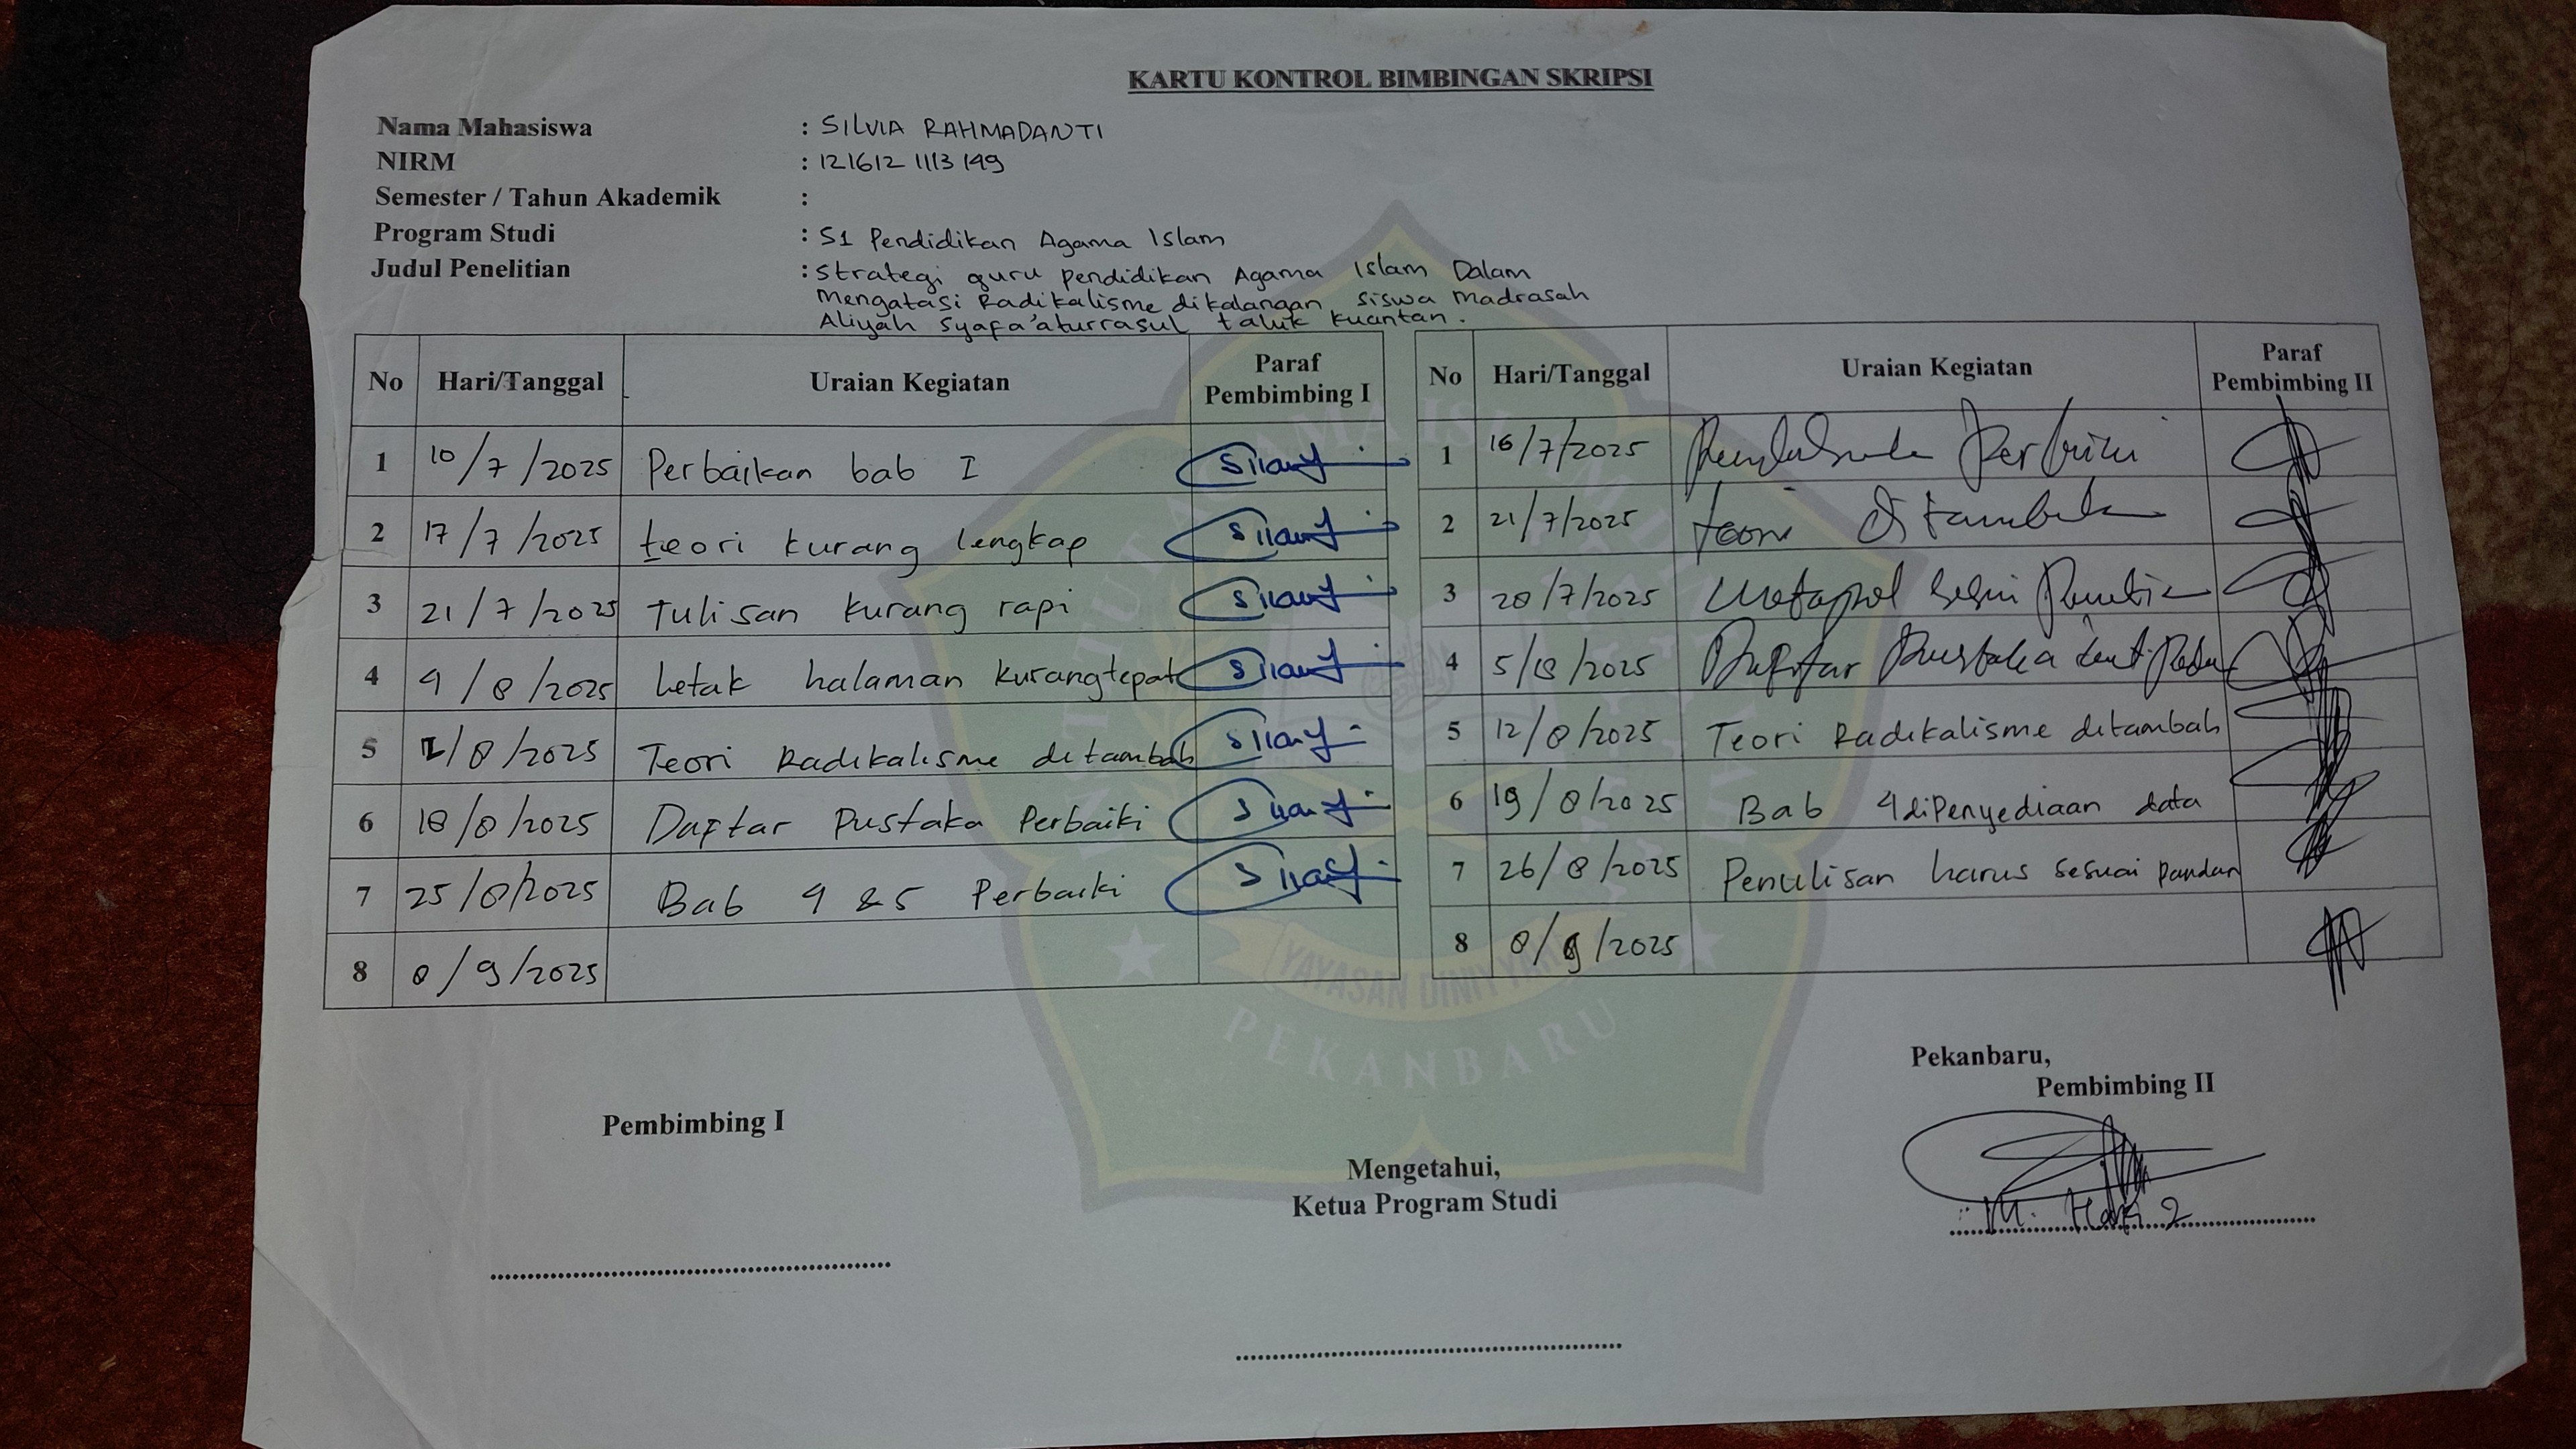 KARTU KONTROL BIMBINGAN SKRIPSI
Nama Mahasiswa : SILVIA RAHMADANTI
NIRM : 1216121113149
Semester / Tahun Akademik :
Program Studi : S1 Pendidikan Agama Islam
Judul Penelitian : Strategi guru pendidikan Agama Islam Dalam
Mengatasi Radikalisme dikalangan siswa Madrasah
Aliyah Syafa'aturrasul taluk kuantan.
No Hari/Tanggal Uraian Kegiatan Paraf Pembimbing I
1 10/7/2025 Perbaikan bab I
2 17/7/2025 teori kurang lengkap
3 21/7/2025 Tulisan kurang rapi
4 4/8/2025 Letak halaman kurang tepat
5 /8/2025 Teori Radikalisme ditambah
6 18/8/2025 Daftar Pustaka Perbaiki
7 25/8/2025 Bab 4 & 5 Perbaiki
8 8/9/2025
No Hari/Tanggal Uraian Kegiatan Paraf Pembimbing II
1 16/7/2025
2 21/7/2025 teori ditambah
3 28/7/2025
4 5/8/2025 Daftar Pustaka
5 12/8/2025 Teori Radikalisme ditambah
6 19/8/2025 Bab 4 dipenyediaan data
7 26/8/2025 Penulisan harus sesuai panduan
8 8/9/2025
YAYASAN DINIYYAH
PEKANBARU
Pekanbaru,
Pembimbing II
Pembimbing I
Mengetahui,
Ketua Program Studi